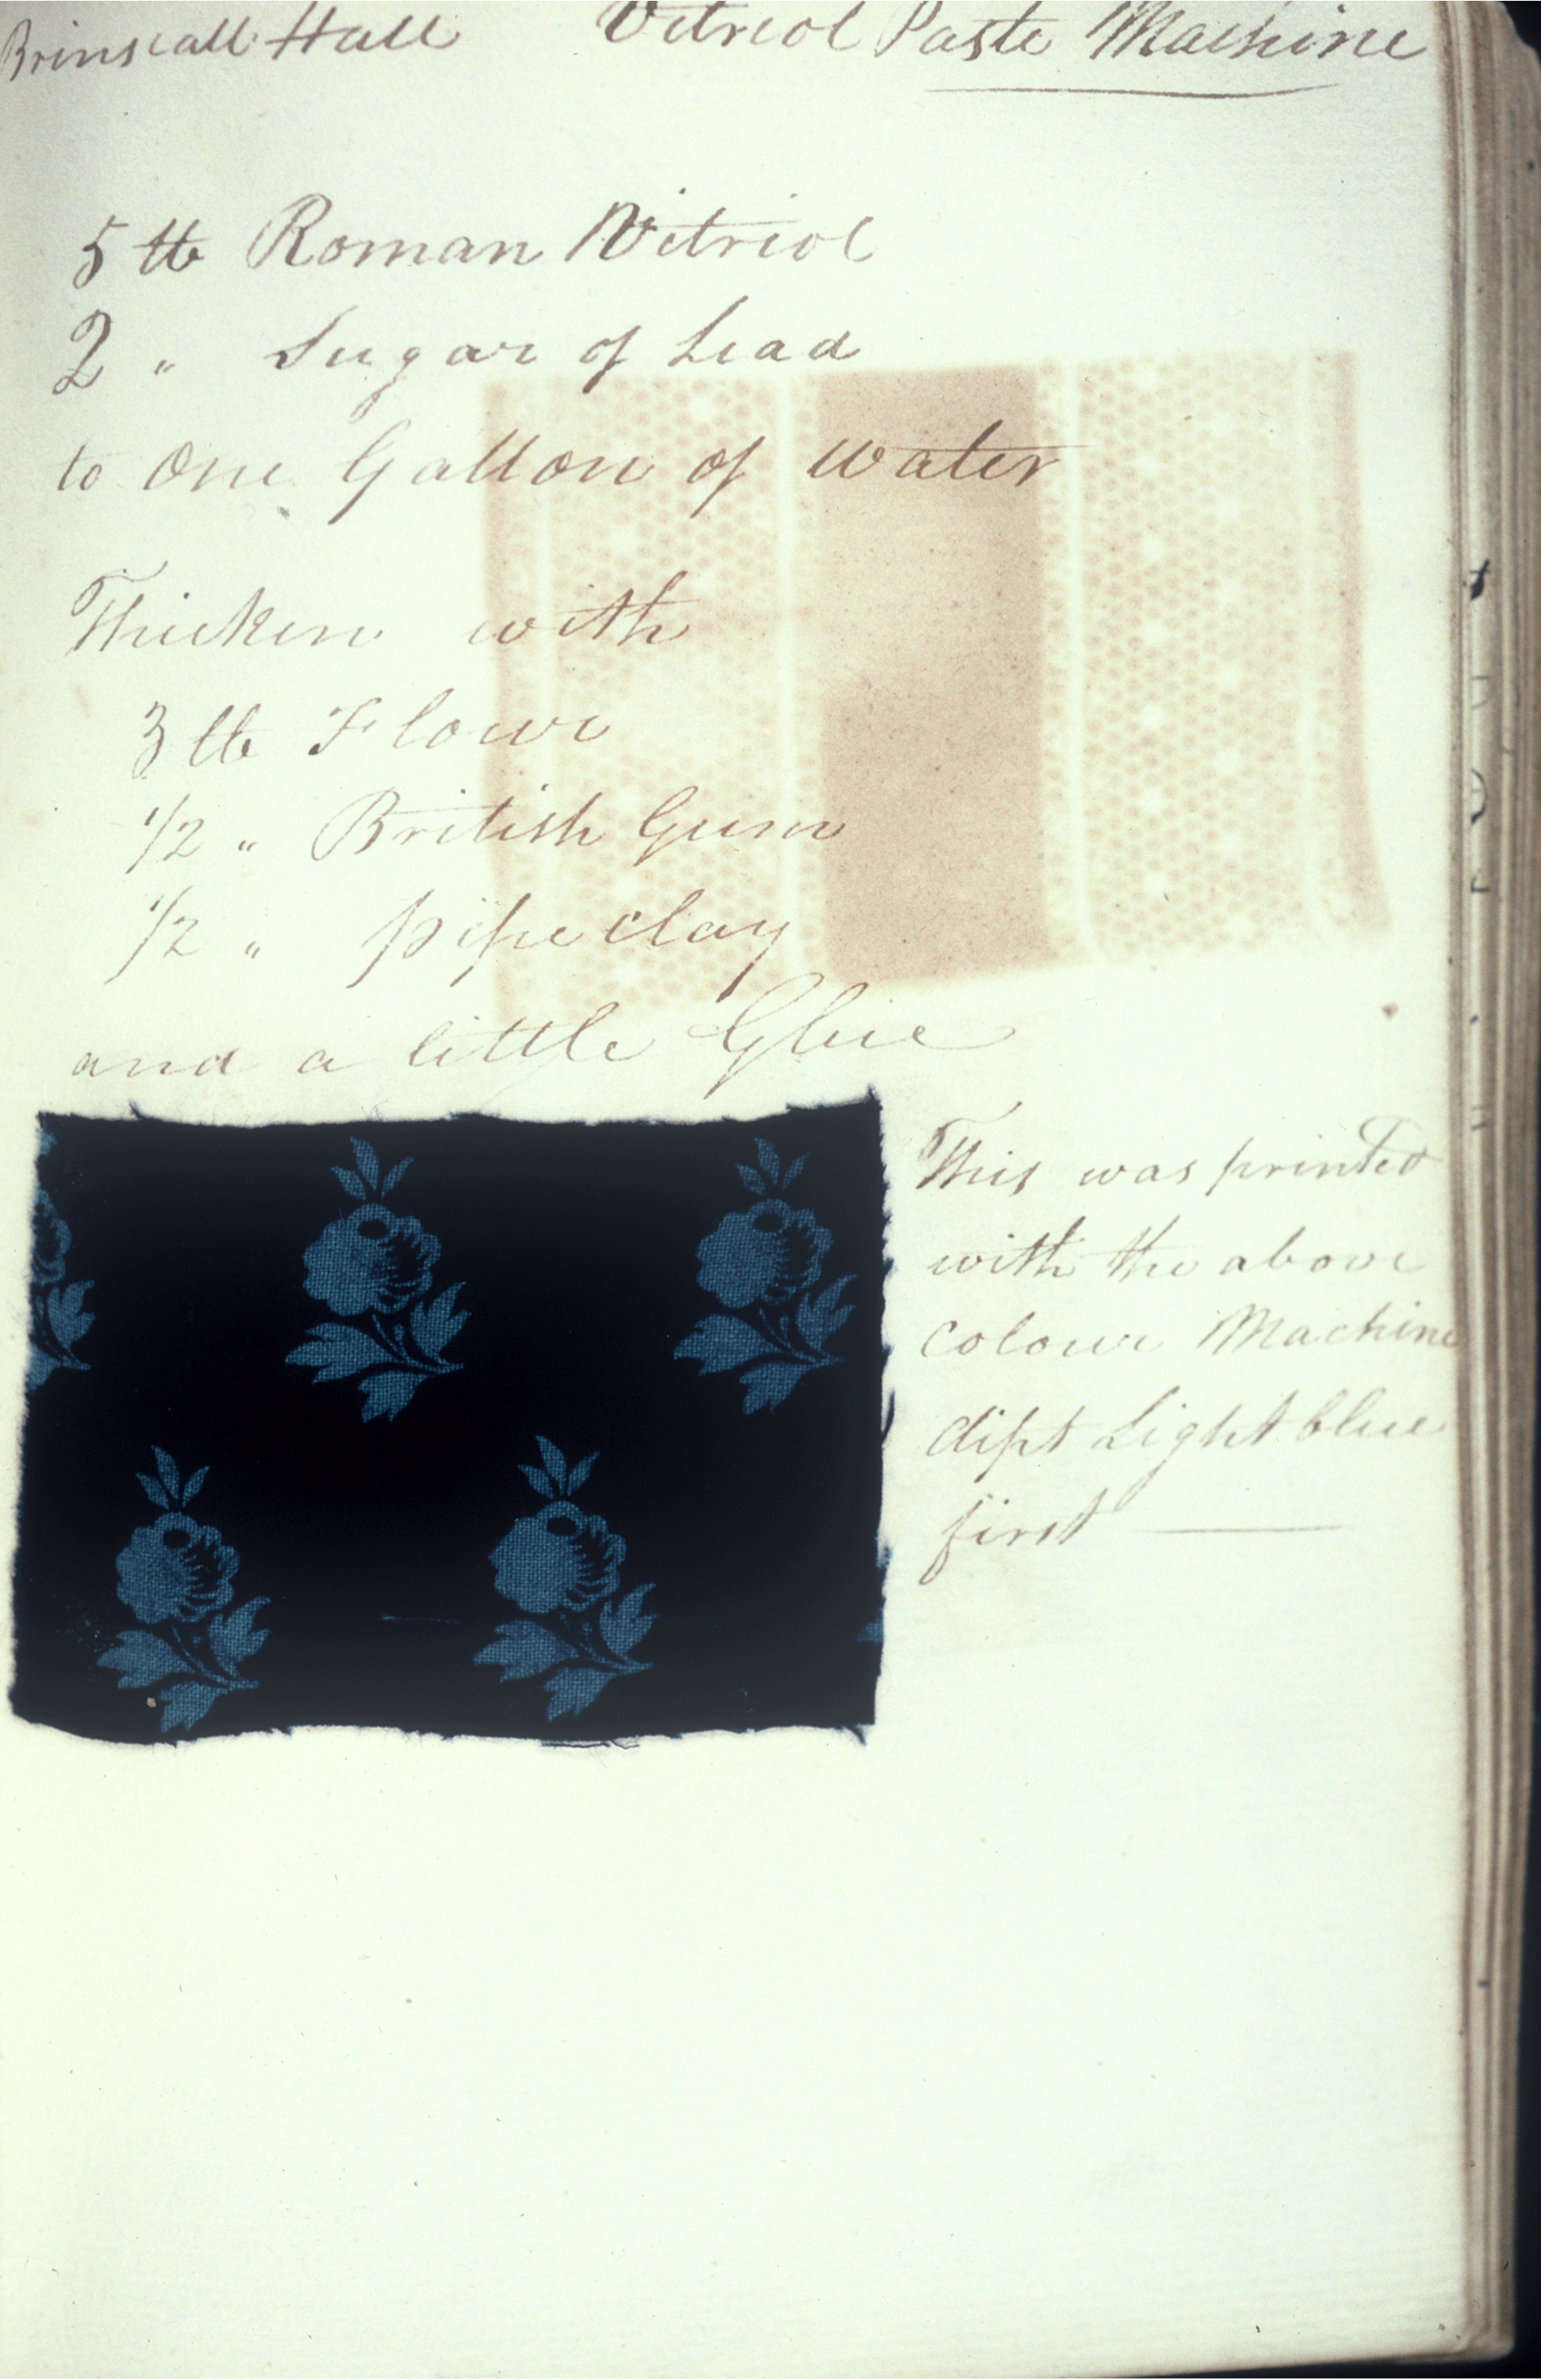 Brinscall Hall Vitriol Paste Machine
5 lb Roman Vitriol
2 " Sugar of Lead
to One Gallon of Water
Thicken with
3 lb Flour
1/2 " British Gum
1/2 " pipe clay
and a little Glue
This was printed
with the above
Colour Machine
dipt Light blue
first